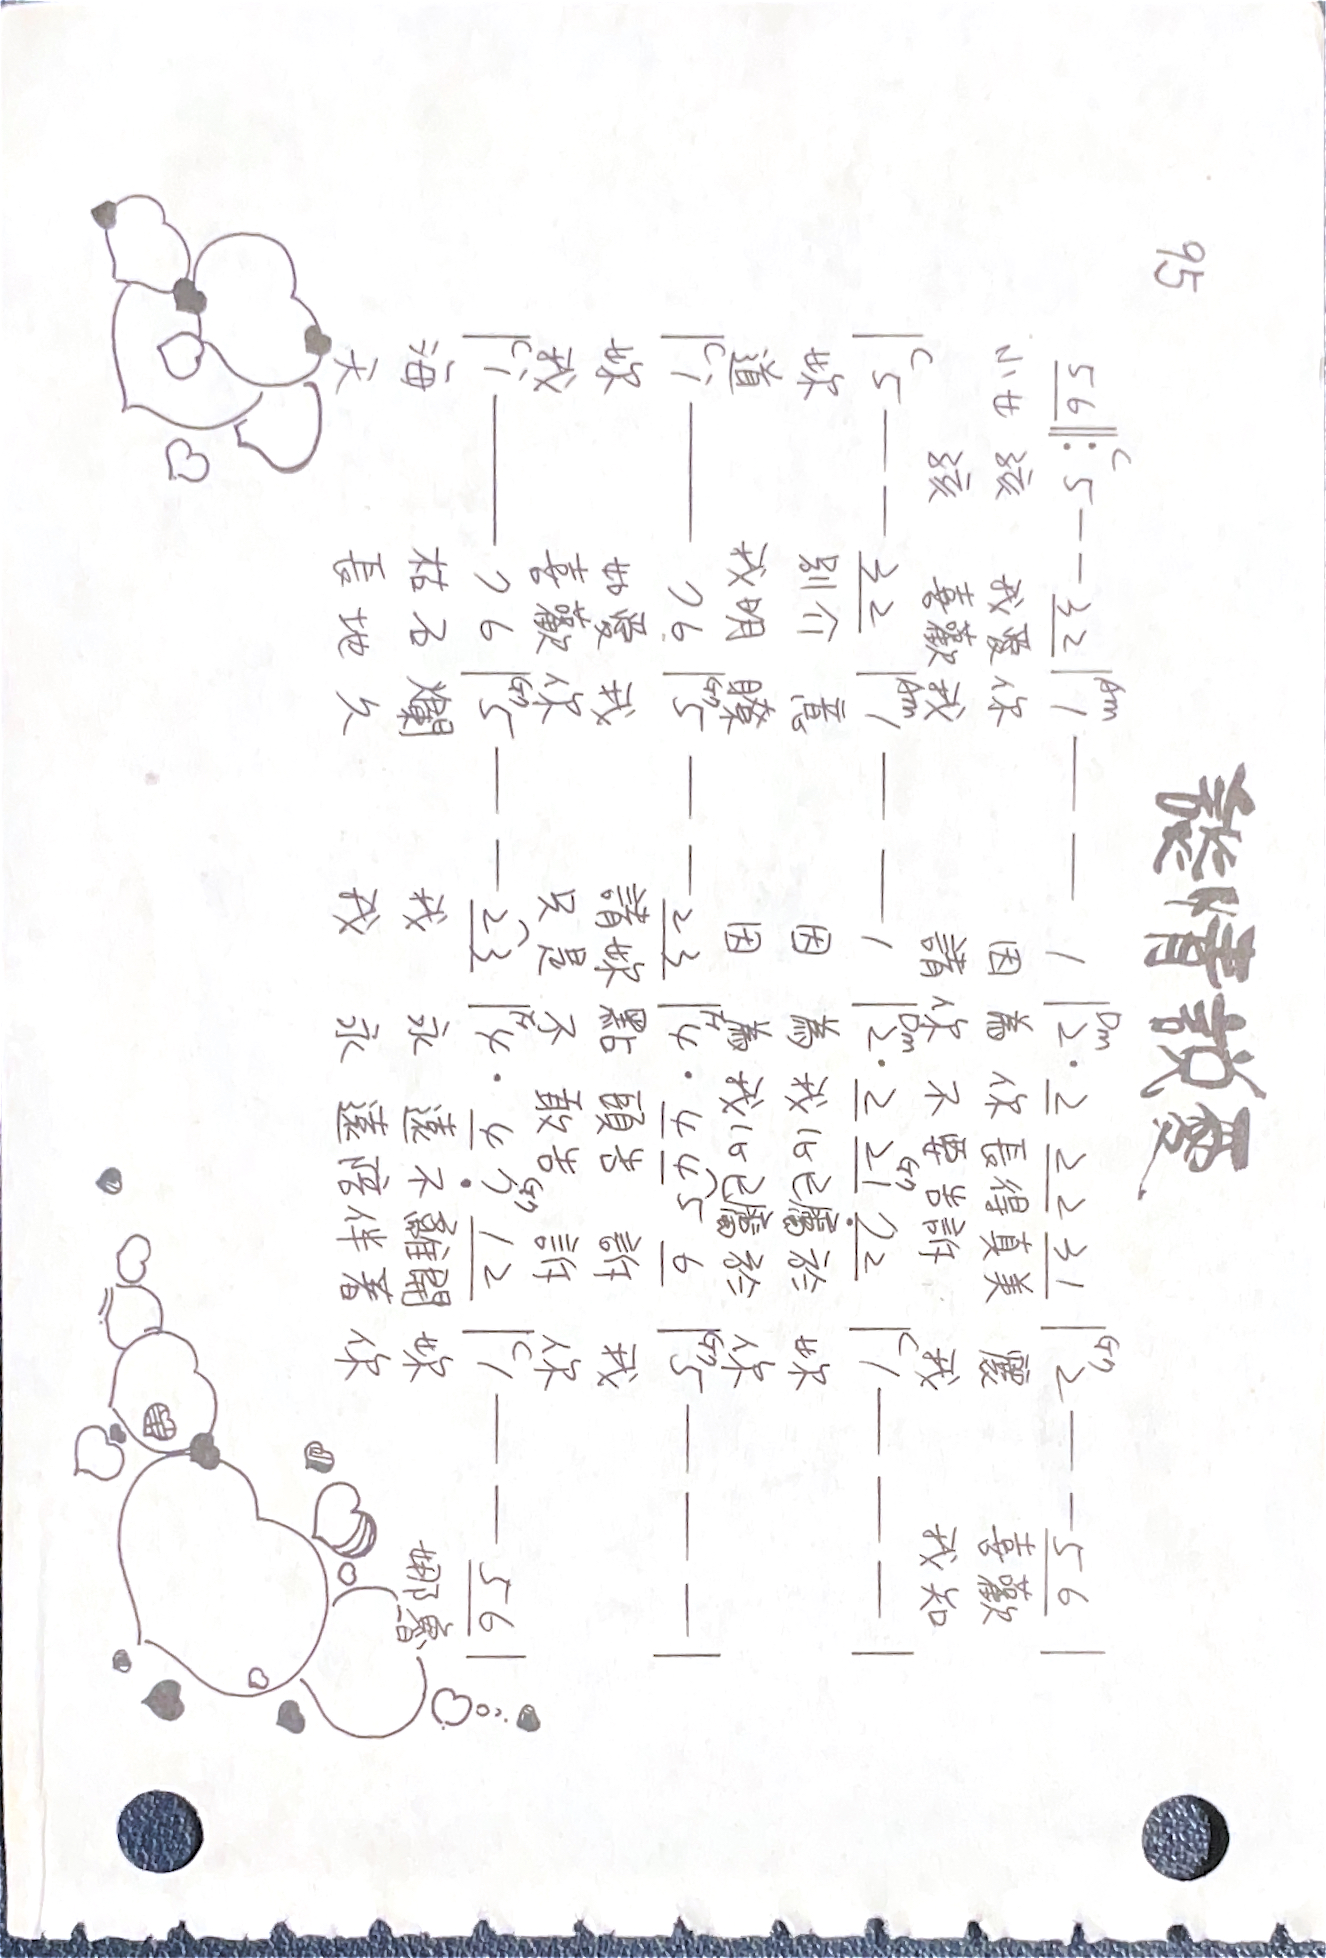 談情說愛
95
C Am Dm G7
56‖: 5 — — 32 | 1 — — 1 | 2· 2 22 31 | 2 — — 56 |
小女孩 我愛你 因為你長得真美麗 喜歡
孩 喜歡我 請你不要告訴我 我知
C Am Dm G7 C
| 5 — — 32 | 1 — — 1 | 2· 2 21 7̣2 | 1 — — — |
妳 別介意 因為我心已屬於妳
道 我明瞭 因為我心已屬於你
C G7 F G7
| i — 76 | 5 — — 23 | 4· 4 45 6 | 5 — — — |
妳 如愛我 請妳點頭告訴我
我 喜歡你 只是不敢告訴你
C G7 F G7 C
| i — 76 | 5 — — 23 | 4· 4 7̣ 12 | 1 — — 56 |
海 枯石爛 我永遠不離開妳 娜魯
天 長地久 我永遠陪伴著你